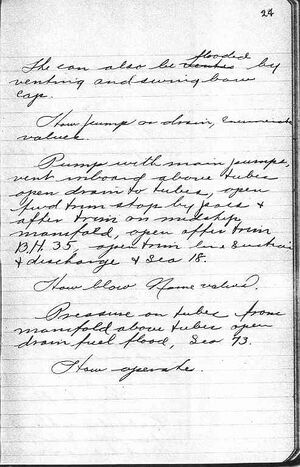 24
She can also be flooded by
venting and swing bow
cap.
How pump or drain, enumerate
valves.
Pump with main pumps,
vent inboard above tubes
open drain to tubes, open
fwd trim stop by pass &
after trim on midship
manifold, open after trim
B.H. 35, open trim line suction
& discharge & Sea 18.
How blow Name valves.
Pressure on tubes from
manifold above tubes open
drain fuel flood, Sea 73.
How operate.